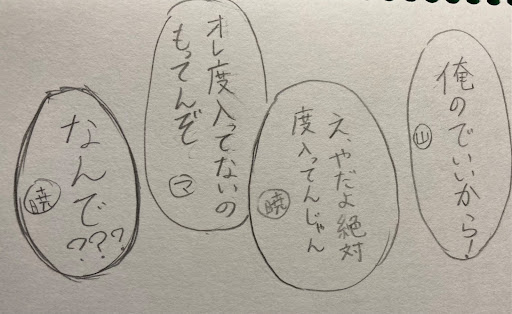 俺のでいいから!
山
え、やだよ絶対
度入ってんじゃん
暁
オレ度入ってないの
もってんぞ
マ
なんで???
暁